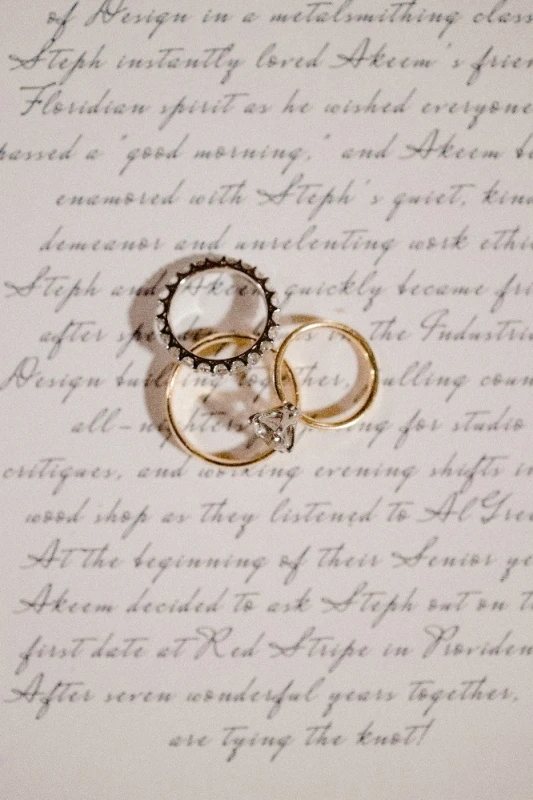 of Design in a metalsmithing class
Steph instantly loved Akeem's frien
Floridian spirit as he wished everyone
passed a "good morning," and Akeem b
enamored with Steph's quiet, kind
demeanor and unrelenting work ethi
Steph and Akeem quickly became fri
after in the Industria
Design building together, pulling coun
all-nighters for studio
critiques, and working evening shifts in
wood shop as they listened to Al Gree
At the beginning of their Senior ye
Akeem decided to ask Steph out on t
first date at Red Stripe in Providen
After seven wonderful years together,
are tying the knot!